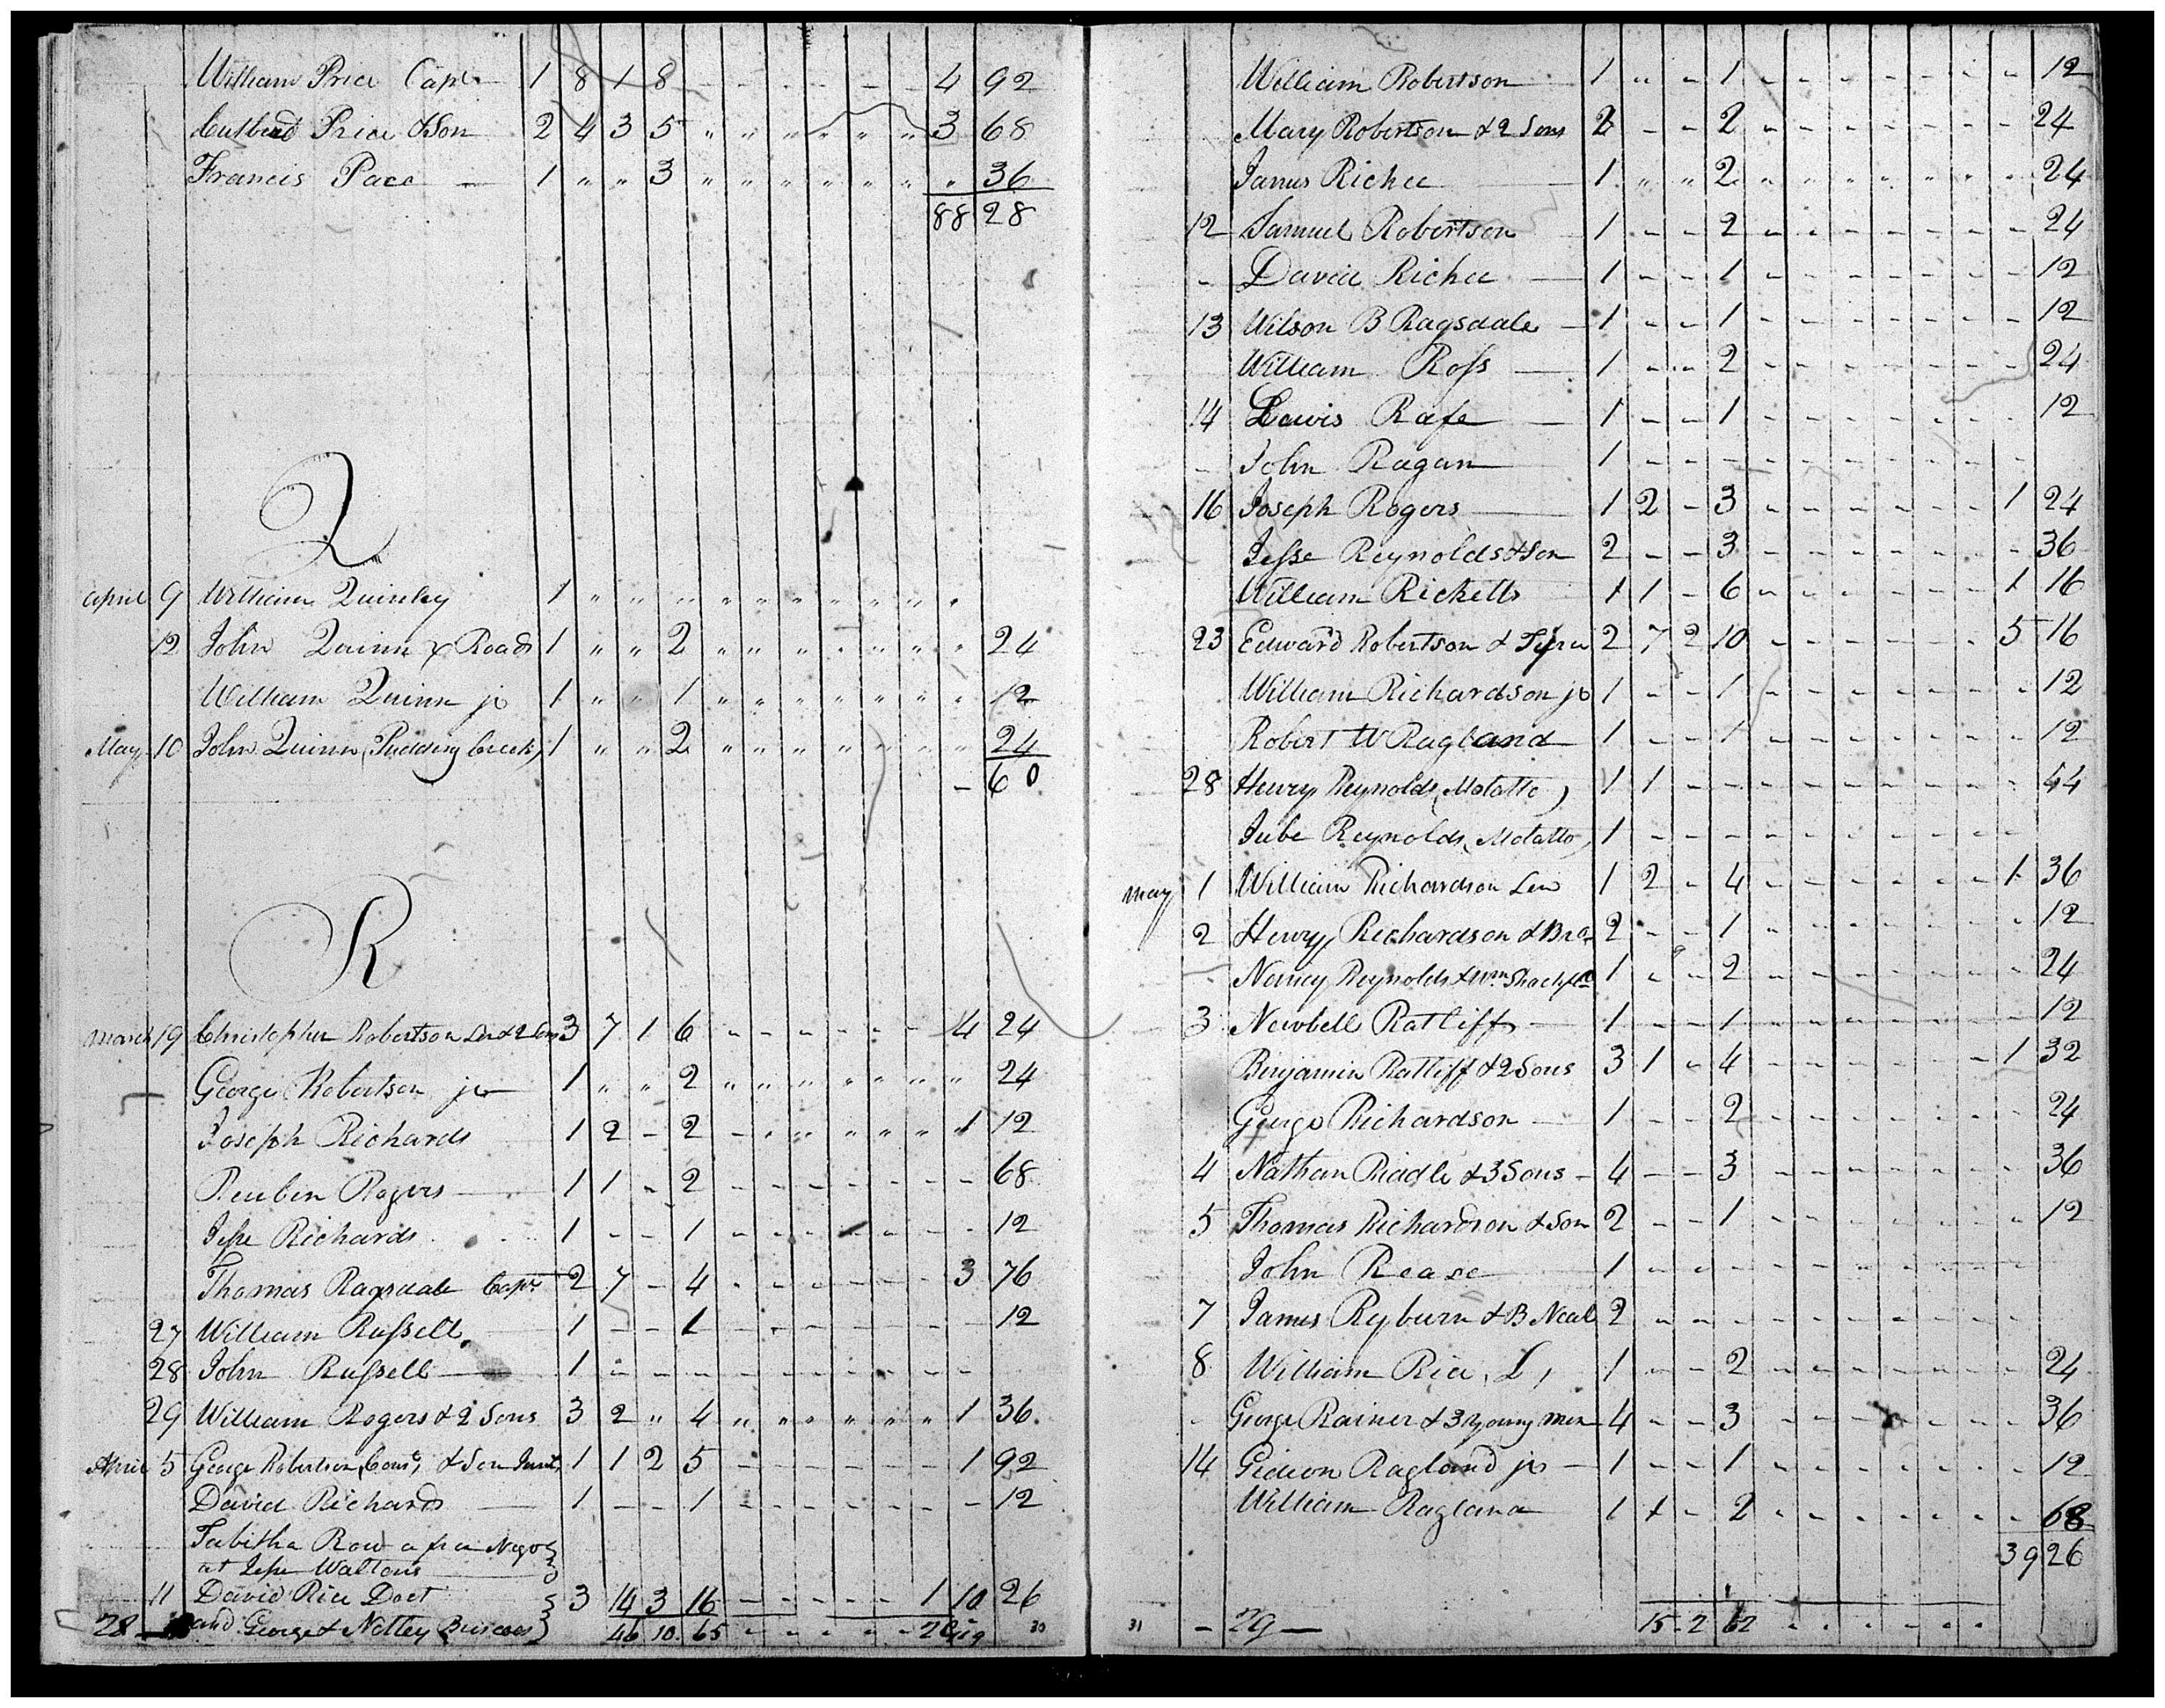 William Price Capt 1 8 1 8 - - - - - - 4 92
Cutberd Price & Son 2 4 3 5 " " " " " " 3 68
Francis Pace — 1 " " 3 " " " " " " " 36
88 28
Q
April 9 William Quinley 1 " " " " " " " " " "
12 John Quinn x Roads 1 " " 2 " " " " " " " 24
William Quinn jr 1 " " 1 " " " " " " " 12
May 10 John Quinn (Pudding Creek) 1 " " 2 " " " " " " " 24
- 60
R
March 19 Christopher Robertson Sen & 2 Sons 3 7 1 6 - - - - - - 4 24
George Robertson jr 1 " " 2 " " " " " " " 24
Joseph Richards 1 2 - 2 - " " " " " 1 12
Reuben Rogers 1 1 - 2 - - - - - - - 68
Jesse Richards 1 - - 1 - - - - - - - 12
Thomas Ragsdale Capt 2 7 - 4 - - - - - - 3 76
27 William Russell 1 - - 1 - - - - - - - 12
28 John Russell 1 - - - - - - - - - -
29 William Rogers & 2 Sons 3 2 " 4 " " " " " " 1 36
April 5 George Robertson, Cons, & Son 1 1 2 5 - - - - - - 1 92
David Richards 1 - - 1 - - - - - - - 12
Tabitha Row a free Negoe
at Jesse Waltons
11 David Rice Doct 3 14 3 16 - - - - - 1 10 26
28 and George & Notley
46 10 65 - - - - - 30
William Robertson 1 " - 1 - - - - - - - 12
Mary Robertson & 2 Sons 2 - - 2 - - - - - - - 24
James Richee 1 " " 2 " " " " " " " 24
12 Samuel Robertson 1 - - 2 - - - - - - - 24
- David Richee 1 - - 1 - - - - - - - 12
13 Wilson B Ragsdale 1 - - 1 - - - - - - - 12
William Ross 1 - - 2 - - - - - - - 24
14 Lewis Rafe 1 - - 1 - - - - - - - 12
- John Ragan 1 - - - - - - - - - -
16 Joseph Rogers 1 2 - 3 - - - - - - 1 24
Jesse Reynolds & Son 2 - - 3 - - - - - - - 36
William Ricketts 1 1 - 6 - - - - - - 1 16
23 Edward Robertson & 2 7 2 10 - - - - - - 5 16
William Richardson jr 1 - - 1 - - - - - - - 12
Robert W Ragland 1 - - 1 - - - - - - - 12
28 Henry Reynolds (Molatto) 1 1 - - - - - - - - - 44
Jube Reynolds (Molatto) 1 - - - - - - - - - -
May 1 William Richardson Sen 1 2 - 4 - - - - - - 1 36
2 Henry Richardson & Bro 2 - - 1 - - - - - - - 12
Nancy Reynolds & Wm 1 - - 2 - - - - - - - 24
3 Newbell Ratliff 1 - - 1 - - - - - - - 12
Binjamin Ratliff & 2 Sons 3 1 - 4 - - - - - - 1 32
George Richardson 1 - - 2 - - - - - - - 24
4 Nathan Riddle & 3 Sons 4 - - 3 - - - - - - - 36
5 Thomas Richardson & Son 2 - - 1 - - - - - - - 12
John Rease 1 - - - - - - - - - -
7 James Ryburn & B Neal 2 - - - - - - - - - -
8 William Rice, L, 1 - - 2 - - - - - - - 24
- George Rainer & 3 young men 4 - - 3 - - - - - - - 36
14 Gideon Ragland jr 1 - - 1 - - - - - - - 12
William Ragland 1 1 - 2 - - - - - - - 68
39 26
31 - 29 — 15 - 2 62 - - - - - -